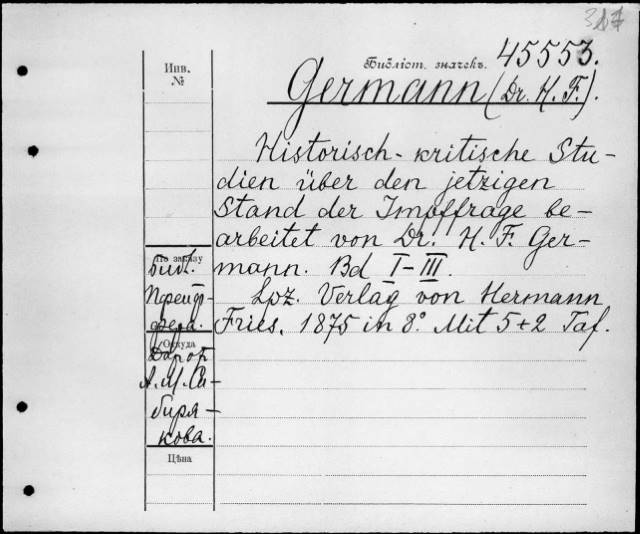 Инв.
№
Библіот. значекъ. 45553.
Germann (Dr. H. F.).
Historisch-kritische Stu-
dien über den jetzigen
Stand der Impffrage be-
arbeitet von Dr. H. F. Ger-
mann. Bd I–III.
Lpz. Verlag von Hermann
Fries, 1875 in 8º. Mit 5+2 Taf.
По заказу
библ.
Пфейф-
фера.
Откуда
Дар от
А. М. Си-
биря-
кова.
Цѣна